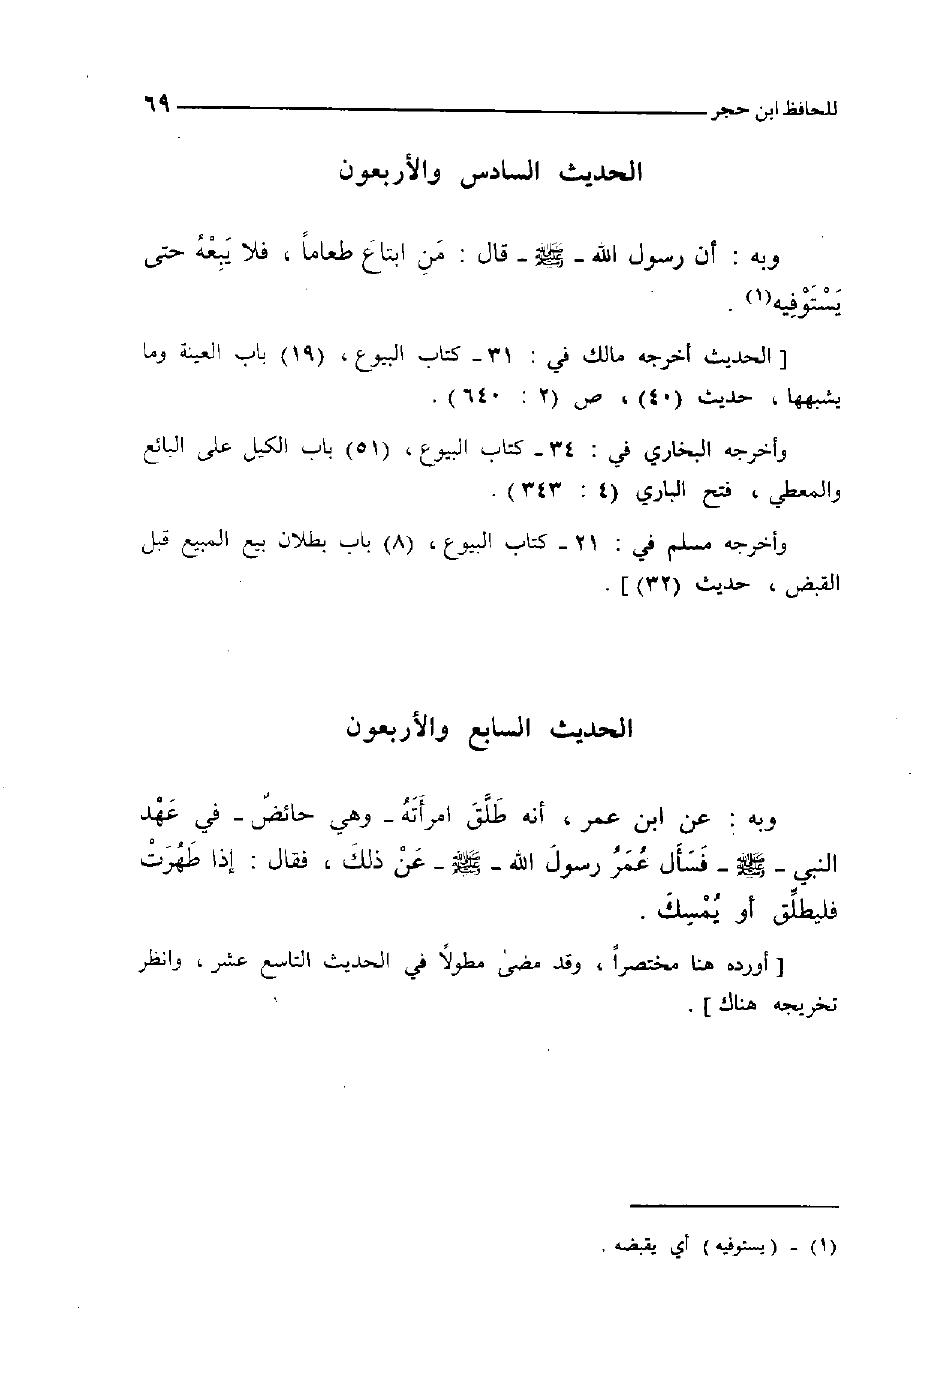 للحافظ ابن حجر ٦٩
الحديث السادس والأربعون
وبه : أن رسول الله - ﷺ - قال : مَنِ ابتاعَ طعاماً ، فلا يَبِعْهُ حتى
يَسْتَوْفِيه(١) .
[ الحديث أخرجه مالك في : ٣١- كتاب البيوع ، (١٩) باب العينة وما
يشبهها ، حديث (٤٠) ، ص (٢ : ٦٤٠) .
وأخرجه البخاري في : ٣٤- كتاب البيوع ، (٥١) باب الكيل على البائع
والمعطي ، فتح الباري (٤ : ٣٤٣) .
وأخرجه مسلم في : ٢١- كتاب البيوع ، (٨) باب بطلان بيع المبيع قبل
القبض ، حديث (٣٢) ] .
الحديث السابع والأربعون
وبه : عن ابن عمر ، أنه طَلَّقَ امرأَتَهُ - وهي حائضٌ - في عَهْد
النبي - ﷺ - فَسَأَل عُمَرُ رسولَ الله - ﷺ - عَنْ ذلكَ ، فقال : إذا طَهُرَتْ
فليطلِّق أو يُمْسِكَ .
[ أورده هنا مختصراً ، وقد مضىٰ مطولاً في الحديث التاسع عشر ، وانظر
تخريجه هناك ] .
(١) - (يستوفيه) أي يقبضه .